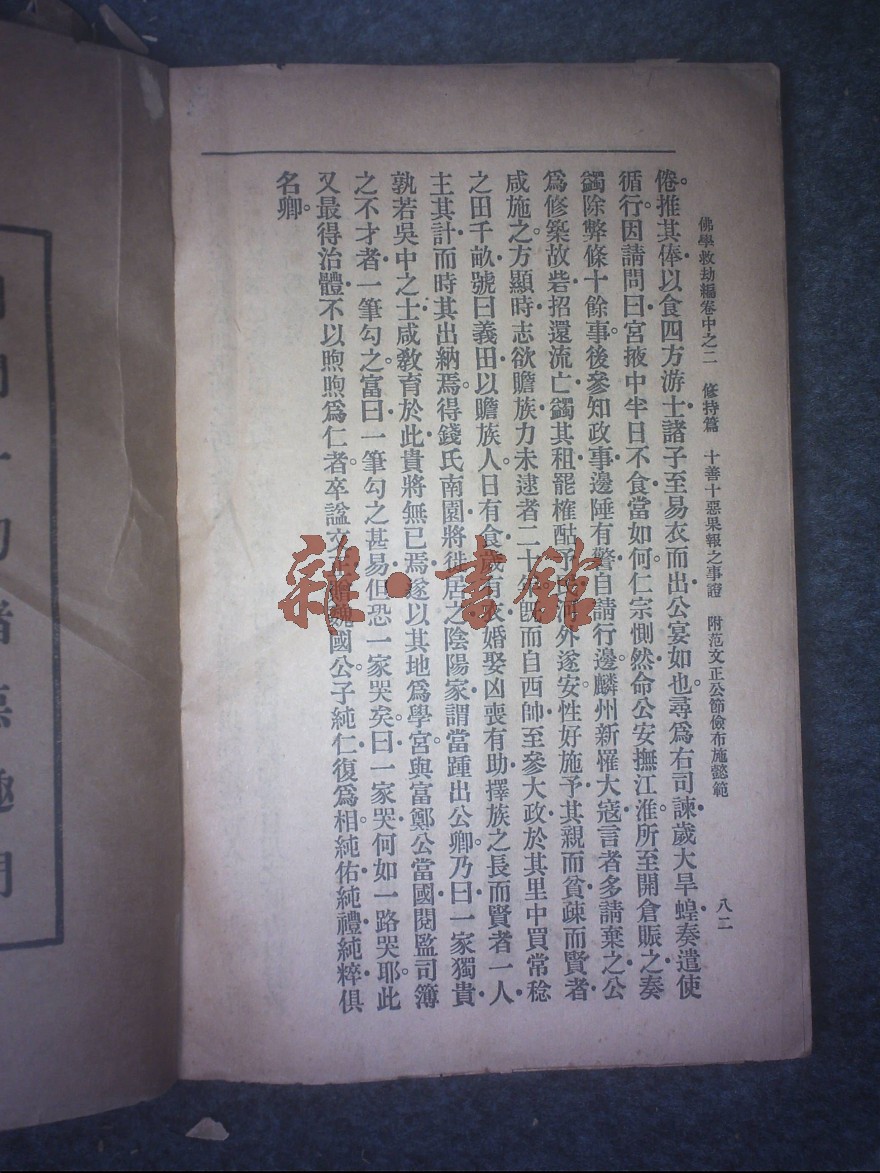 佛學救劫編卷中之二　修持篇　十善十惡果報之事證　附范文正公節儉布施懿範　八二
倦。推其俸以食四方游士諸子至易衣而出公宴如也尋爲右司諫歲大旱蝗奏遣使
循行。因請問曰宮掖中半日不食當如何仁宗惻然命公安撫江淮所至開倉賑之奏
蠲除弊條十餘事。後參知政事邊陲有警自請行邊。麟州新罹大寇言者多請棄之公
爲修築故砦招還流亡蠲其租罷榷酤予民河外遂安。性好施予其親而貧疎而賢者
咸施之。方顯時志欲贍族力未逮者二十年旣而自西帥至參大政於其里中買常稔
之田千畝號曰義田以贍族人。日有食歲有衣婚娶凶喪有助擇族之長而賢者一人
主其計而時其出納焉。得錢氏南園將徙居之陰陽家謂當踵出公卿乃曰一家獨貴
孰若吳中之士咸敎育於此貴將無已焉遂以其地爲學宮。與富鄭公當國閱監司簿
之不才者一筆勾之。富曰一筆勾之甚易但恐一家哭矣。曰一家哭何如一路哭耶。此
又最得治體不以煦煦爲仁者。卒諡文正贈魏國公。子純仁復爲相純佑純禮純粹俱
名卿。
雜·書館